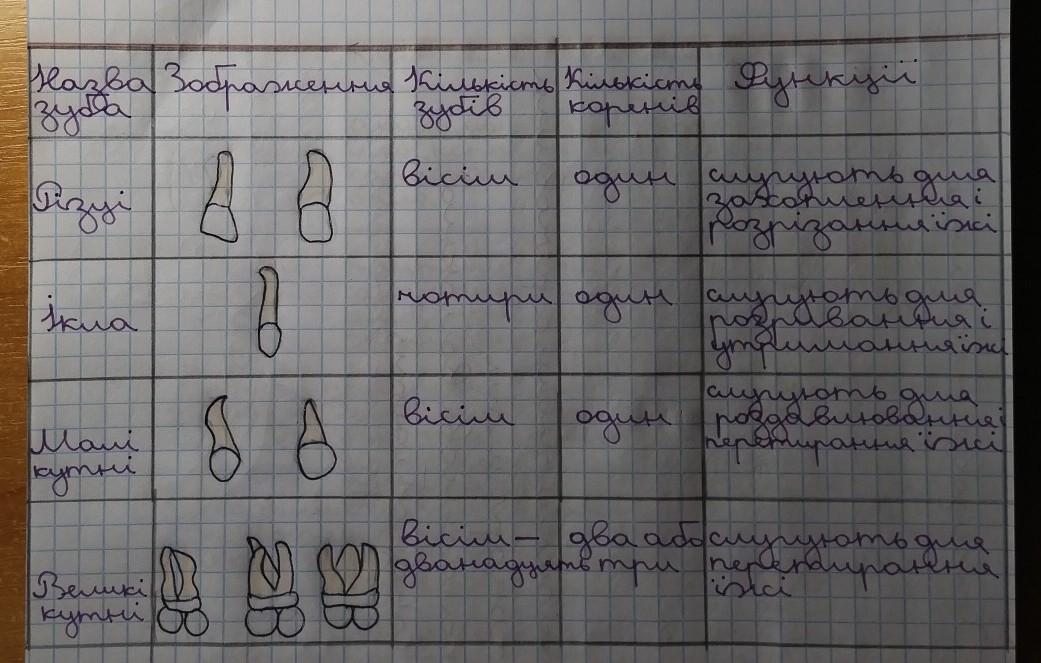 Назва Зображення Кількість Кількість Функції
зуба зубів коренів
Різці вісім один слугують для
захоплення і
розрізання їжі
Ікла чотири один слугують для
розривання і
утримання їжі
Малі кутні вісім один слугують для
роздавлювання і
перетирання їжі
Великі вісім – два або слугують для
кутні дванадцять три перетирання
їжі